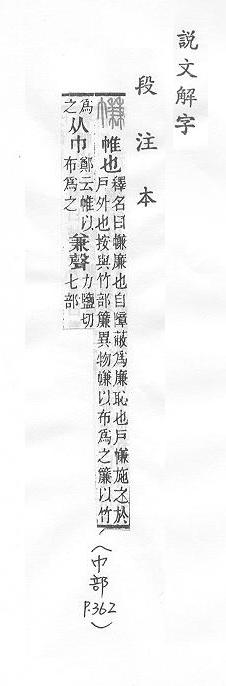 説文解字
段注本
㡘 帷也 釋名曰㡘廉也自障蔽爲廉恥也戶㡘施之於
戶外也按與竹部簾異物㡘以布爲之簾以竹
爲之 从巾 鄭云帷以布爲之 兼聲 力鹽切七部
(巾部 P.362)